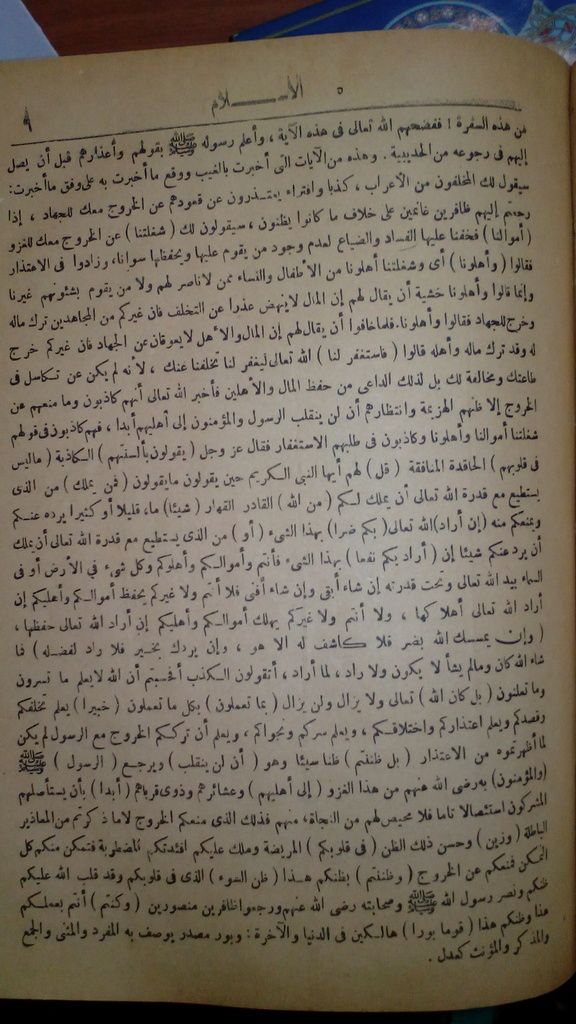 الإسلام ٩
من هذه السفرة ! ففضحهم الله تعالى فى هذه الآية ، وأعلم رسوله ﷺ بقولهم وأعذارهم قبل أن يصل
إليهم فى رجوعه من الحديبية . وهذه من الآيات التى أخبرت بالغيب ووقع ما أخبرت به على وفق ما أخبرت :
سيقول لك المخلفون من الأعراب ، كذبا وافتراء يعتذرون عن قعودهم عن الخروج معك للجهاد ، إذا
رجعتم إليهم ظافرين غانمين على خلاف ما كانوا يظنون ، سيقولون لك ( شغلتنا ) عن الخروج معك للغزو
( أموالنا ) فخفنا عليها الفساد والضياع لعدم وجود من يقوم عليها ويحفظها سوانا، وزادوا فى الاعتذار
فقالوا ( وأهلونا ) أى وشغلتنا أهلونا من الأطفال والنساء ممن لا ناصر لهم ولا من يقوم بشئونهم غيرنا
وإنما قالوا وأهلونا خشية أن يقال لهم إن المال لاينهض عذرا عن التخلف فان غيركم من المجاهدين ترك ماله
وخرج للجهاد فقالوا وأهلونا. فلما خافوا أن يقال لهم إن المال والأهل لا يعوقان عن الجهاد فان غيركم خرج
له وقد ترك ماله وأهله قالوا ( فاستغفر لنا ) الله تعالى ليغفر لنا تخلفنا عنك ، لأنه لم يكن عن تكاسل فى
طاعتك ومخالفة لك بل لذلك الداعى من حفظ المال والأهلين فأخبر الله تعالى أنهم كاذبون وما منعهم من
الخروج إلا ظنهم الهزيمة وانتظارهم أن لن ينقلب الرسول والمؤمنون إلى أهليهم أبدا ، فهم كاذبون فى قولهم
شغلتنا أموالنا وأهلونا وكاذبون فى طلبهم الاستغفار فقال عز وجل ( يقولون بألسنتهم ) الكاذبة ( ماليس
فى قلوبهم ) الحاقدة المنافقة ( قل ) لهم أيها النبى الكريم حين يقولون مايقولون ( فمن يملك ) من الذى
يستطيع مع قدرة الله تعالى أن يملك لكم ( من الله ) القادر القهار ( شيئا) ما، قليلا أو كثيرا يرده عنكم
ويمنعكم منه (إن أراد) الله تعالى( بكم ضرا) بهذا الشىء ( أو ) من الذى يستطيع مع قدرة الله تعالى أن يملك
أن يرد عنكم شيئا إن ( أراد بكم نفعا ) بهذا الشىء فأنتم وأموالكم وأهلوكم وكل شىء فى الأرض أو فى
السماء بيد الله تعالى وتحت قدرته إن شاء أبقى وإن شاء أفنى فلا أنتم ولا غيركم يحفظ أموالكم وأهليكم إن
أراد الله تعالى أهلاكها ، ولا أنتم ولا غيركم يهلك أموالكم وأهليكم إن أراد الله تعالى حفظها ،
( وإن يمسسك الله بضر فلا كاشف له الا هو ، وإن يردك بخير فلا راد لفضله ) فما
شاء الله كان ومالم يشأ لا يكون ولا راد ، لما أراد ، أتقولون الكذب أفحسبتم أن الله لايعلم ما تسرون
وما تعلنون ( بل كان الله ) تعالى ولا يزال ولن يزال ( بما تعملون ) بكل ما تعملون ( خبيرا ) يعلم تخلفكم
وقصدكم ويعلم اعتذاركم واختلاقكم ، ويعلم سركم ونجواكم ، ويعلم أن ترككم الخروج مع الرسول لم يكن
لما أظهرتموه من الاعتذار ( بل ظننتم ) ظنا سيئا وهو ( أن لن ينقلب ) ويرجع ( الرسول ) ﷺ
(والمؤمنون) به رضى الله عنهم من هذا الغزو ( إلى أهليهم ) وعشائرهم وذوى قرباهم ( أبدا ) بأن يستأصلهم
المشركون استئصالا تاما فلا محيص لهم من النجاة، منهم فذلك الذى منعكم الخروج لا ما ذكرتم من المعاذير
الباطلة ( وزين ) وحسن ذلك الظن ( فى قلوبكم ) المريضة وملك عليكم افئدتكم المضطربة فتمكن منكم كل
التمكن فمنعكم عن الخروج ( وظننتم ) بظنكم هذا ( ظن السوء ) الذى فى قلوبكم وقد قلب الله عليكم
ظنكم ونصر رسول الله ﷺ وصحابته رضى الله عنهم ورجعوا ظافرين منصورين ( وكنتم ) أنتم بعملكم
هذا وظنكم هذا ( قوما بورا ) هالكين فى الدنيا والآخرة : وبور مصدر يوصف به المفرد والمثنى والجمع
والمذكر والمؤنث كعدل .